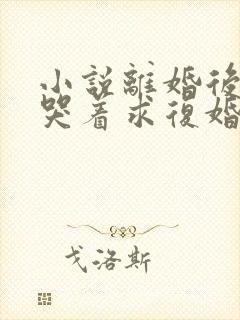 小說離婚後
哭着求復婚
戈洛斯